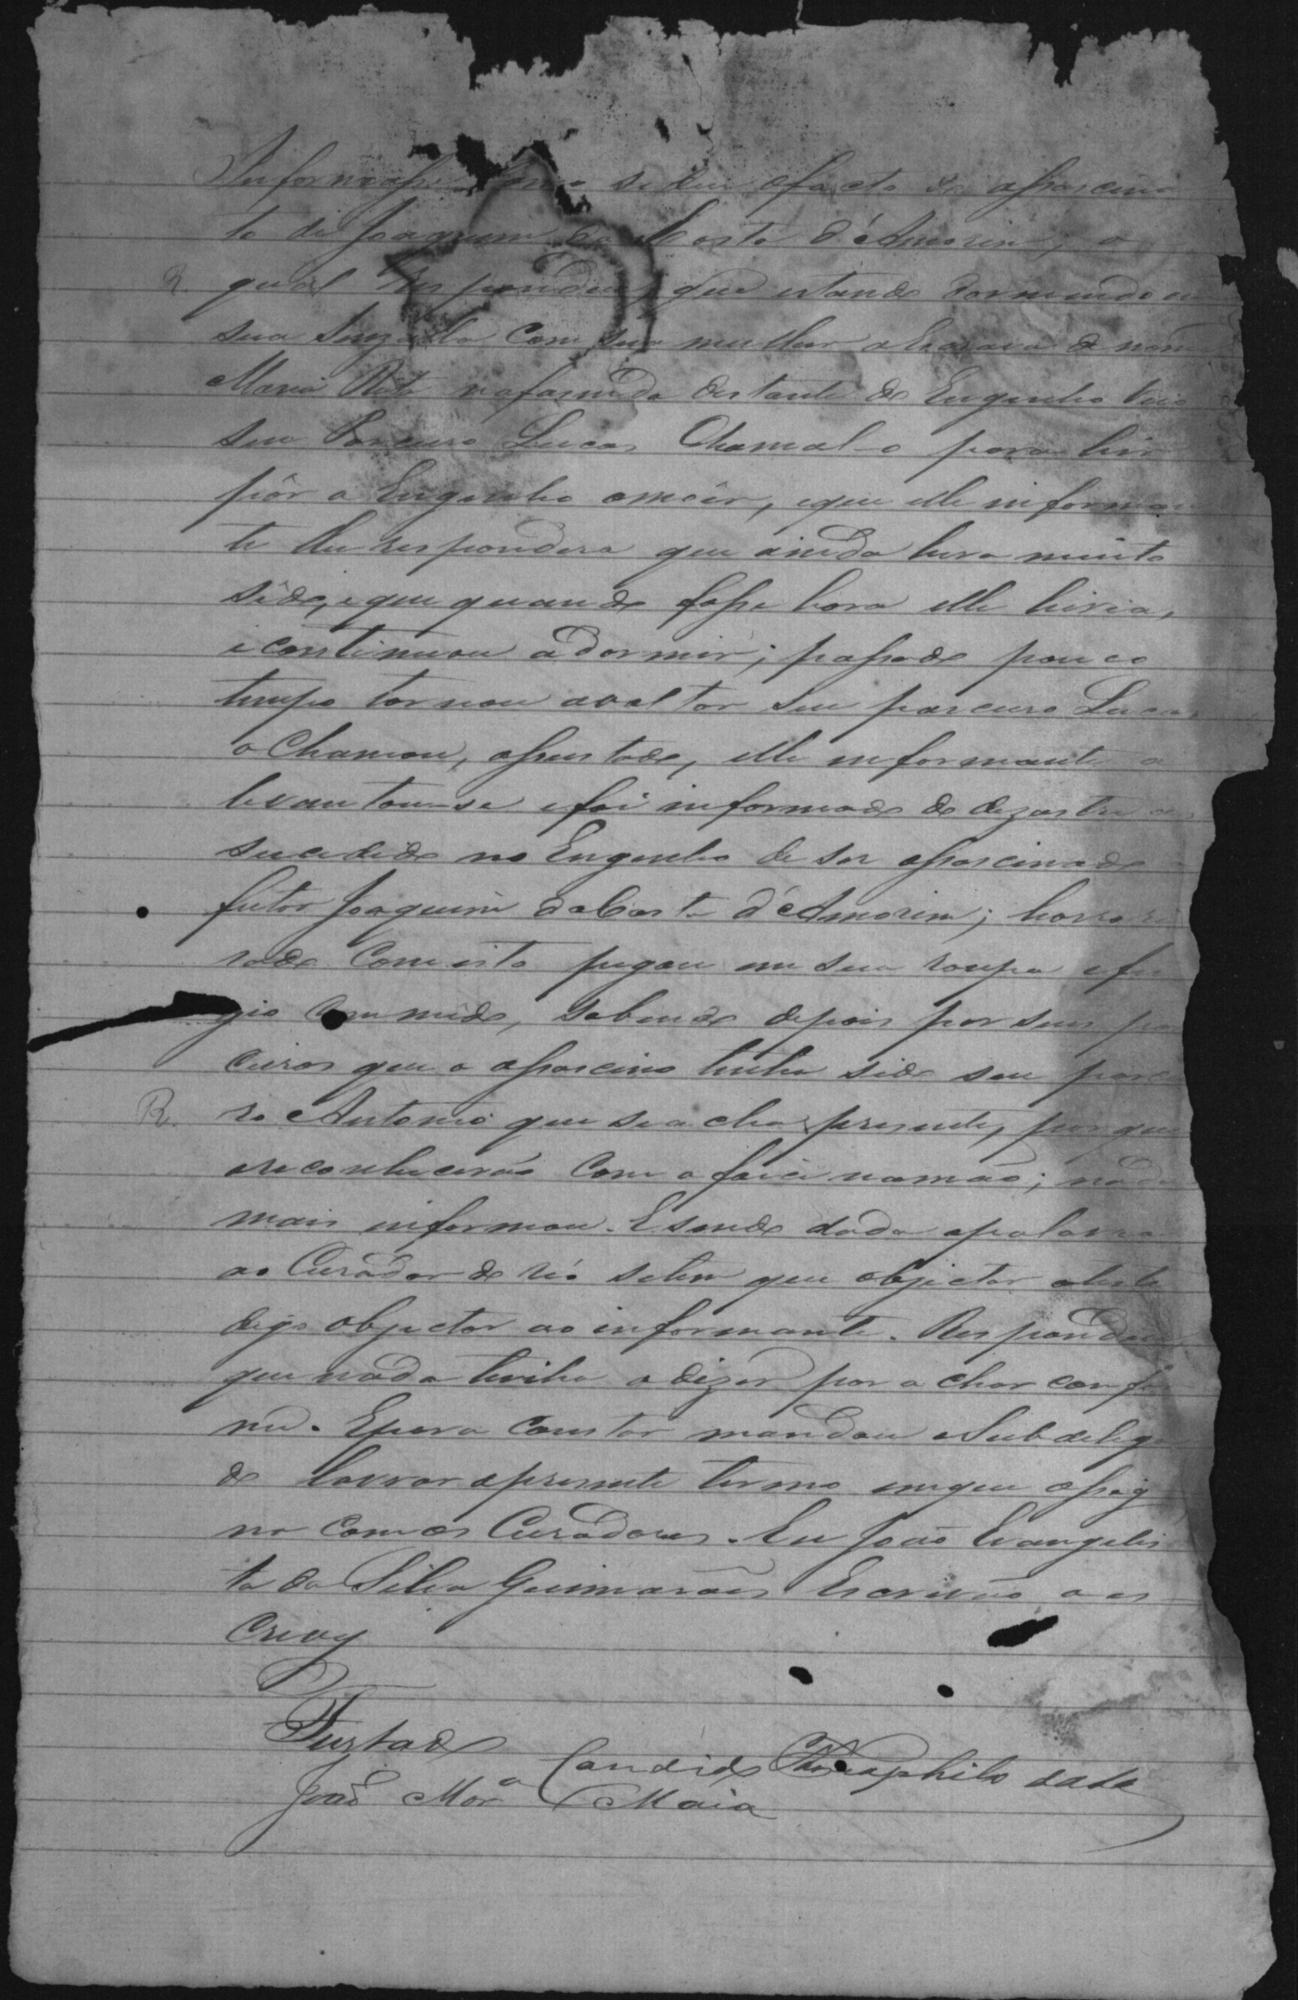 Informasse como se deu ofacto do assacina
to de Joaquim da Costa d'Amorim; o
R. qual respondeu, que estando dormindo em
sua senzalla com sua mulher a Escrava de nome
Maria Rita na fasenda distante do Engenho veio
seu Parceiro Lucas Chamal-o para hir
pôr o Engenho a moêr, eque elle informan
te lhe respondera que ainda hera muito
sêdo, eque quando fosse hora elle hiria,
e continuou a dormir; passado pouco
tempo tornou avoltar seu parceiro Lucas
o Chamou, assustado, elle informante a
levantou-se efoi informado do dezastre a
sucedido no Engenho de ser assacinado o
feitor Joaquim da Costa d'Amorim; horrori
sado Com isto pegou em sua roupa efu
gio com mêdo, sabendo depois por seus par
ceiros que o assacino tinha sido seu parcei
R. ro Antonio que se acha presente, por que
oreconhecerão Com a foice namão; nada
mais informou. Esendo dada apalavra
ao Curador do réo setem que objectar
digo objectar ao informante. Respondeu
que nada tinha a dizer por achar confor
me. Epara Constar mandou oSubdelega
do lavrar apresente termo emque assig
na com os Curadores. Eu João Evangelis
ta da Silva Guimarães Escrivão o es
crevy
Furtado
Candido Theophilo
João Mor.ª Maia